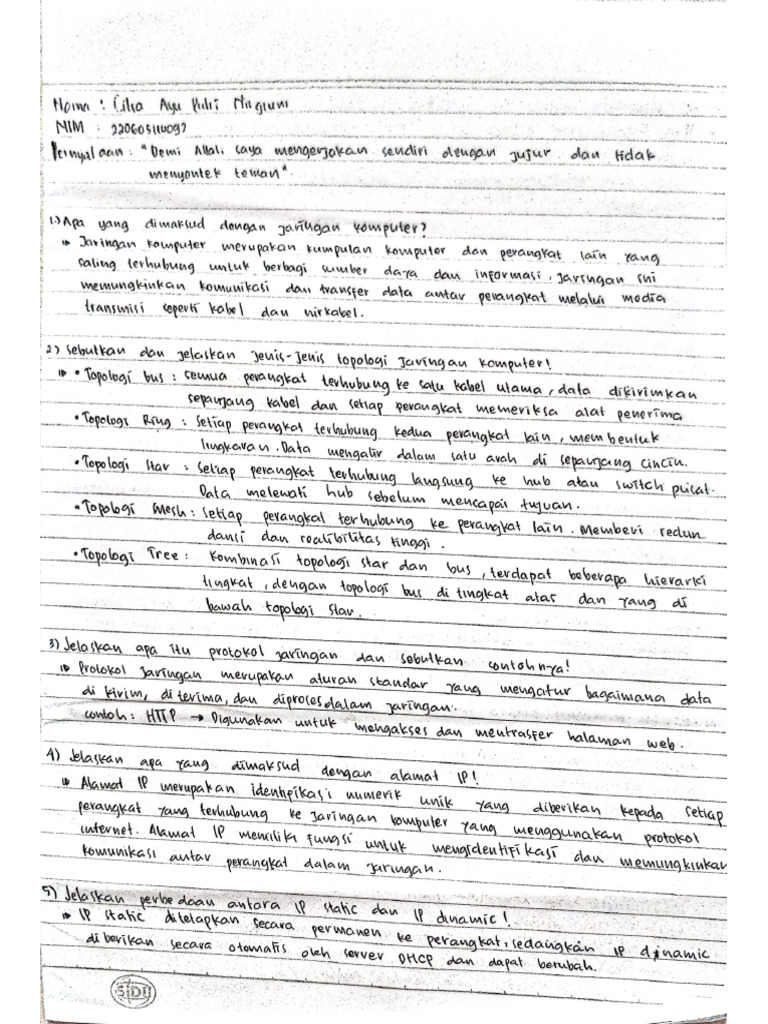 Nama : Ayu Putri
NIM : 220605110097
Pernyataan : "Demi Allah saya mengerjakan sendiri dengan jujur dan tidak
menyontek teman".
1.) Apa yang dimaksud dengan jaringan komputer?
Jaringan komputer merupakan kumpulan komputer dan perangkat lain yang
saling terhubung untuk berbagi sumber daya dan informasi. Jaringan ini
memungkinkan komunikasi dan transfer data antar perangkat melalui media
transmisi seperti kabel dan nirkabel.
2) Sebutkan dan jelaskan jenis-jenis topologi jaringan komputer!
• Topologi bus : semua perangkat terhubung ke satu kabel utama, data dikirimkan
sepanjang kabel dan setiap perangkat memeriksa alat penerima
• Topologi Ring : Setiap perangkat terhubung kedua perangkat lain, membentuk
lingkaran. Data mengalir dalam satu arah di sepanjang cincin.
• Topologi Star : Setiap perangkat terhubung langsung ke hub atau switch pusat.
Data melewati hub sebelum mencapai tujuan.
• Topologi Mesh : Setiap perangkat terhubung ke perangkat lain. Memberi redun
dansi dan realibilitas tinggi.
• Topologi Tree : Kombinasi topologi star dan bus, terdapat beberapa hierarki
tingkat, dengan topologi bus di tingkat atas dan yang di
bawah topologi star.
3) Jelaskan apa itu protokol jaringan dan sebutkan contohnya!
Protokol jaringan merupakan aturan standar yang mengatur bagaimana data
di kirim, di terima, dan diproses dalam jaringan.
contoh : HTTP → Digunakan untuk mengakses dan mentrasfer halaman web.
4) Jelaskan apa yang dimaksud dengan alamat IP!
Alamat IP merupakan identifikasi numerik unik yang diberikan kepada setiap
perangkat yang terhubung ke jaringan komputer yang menggunakan protokol
internet. Alamat IP memiliki fungsi untuk mengidentifikasi dan memungkinkan
komunikasi antar perangkat dalam jaringan.
5) Jelaskan perbedaan antara IP static dan IP dinamic!
IP static ditetapkan secara permanen ke perangkat, sedangkan IP dinamic
diberikan secara otomatis oleh server DHCP dan dapat berubah.
SIDU